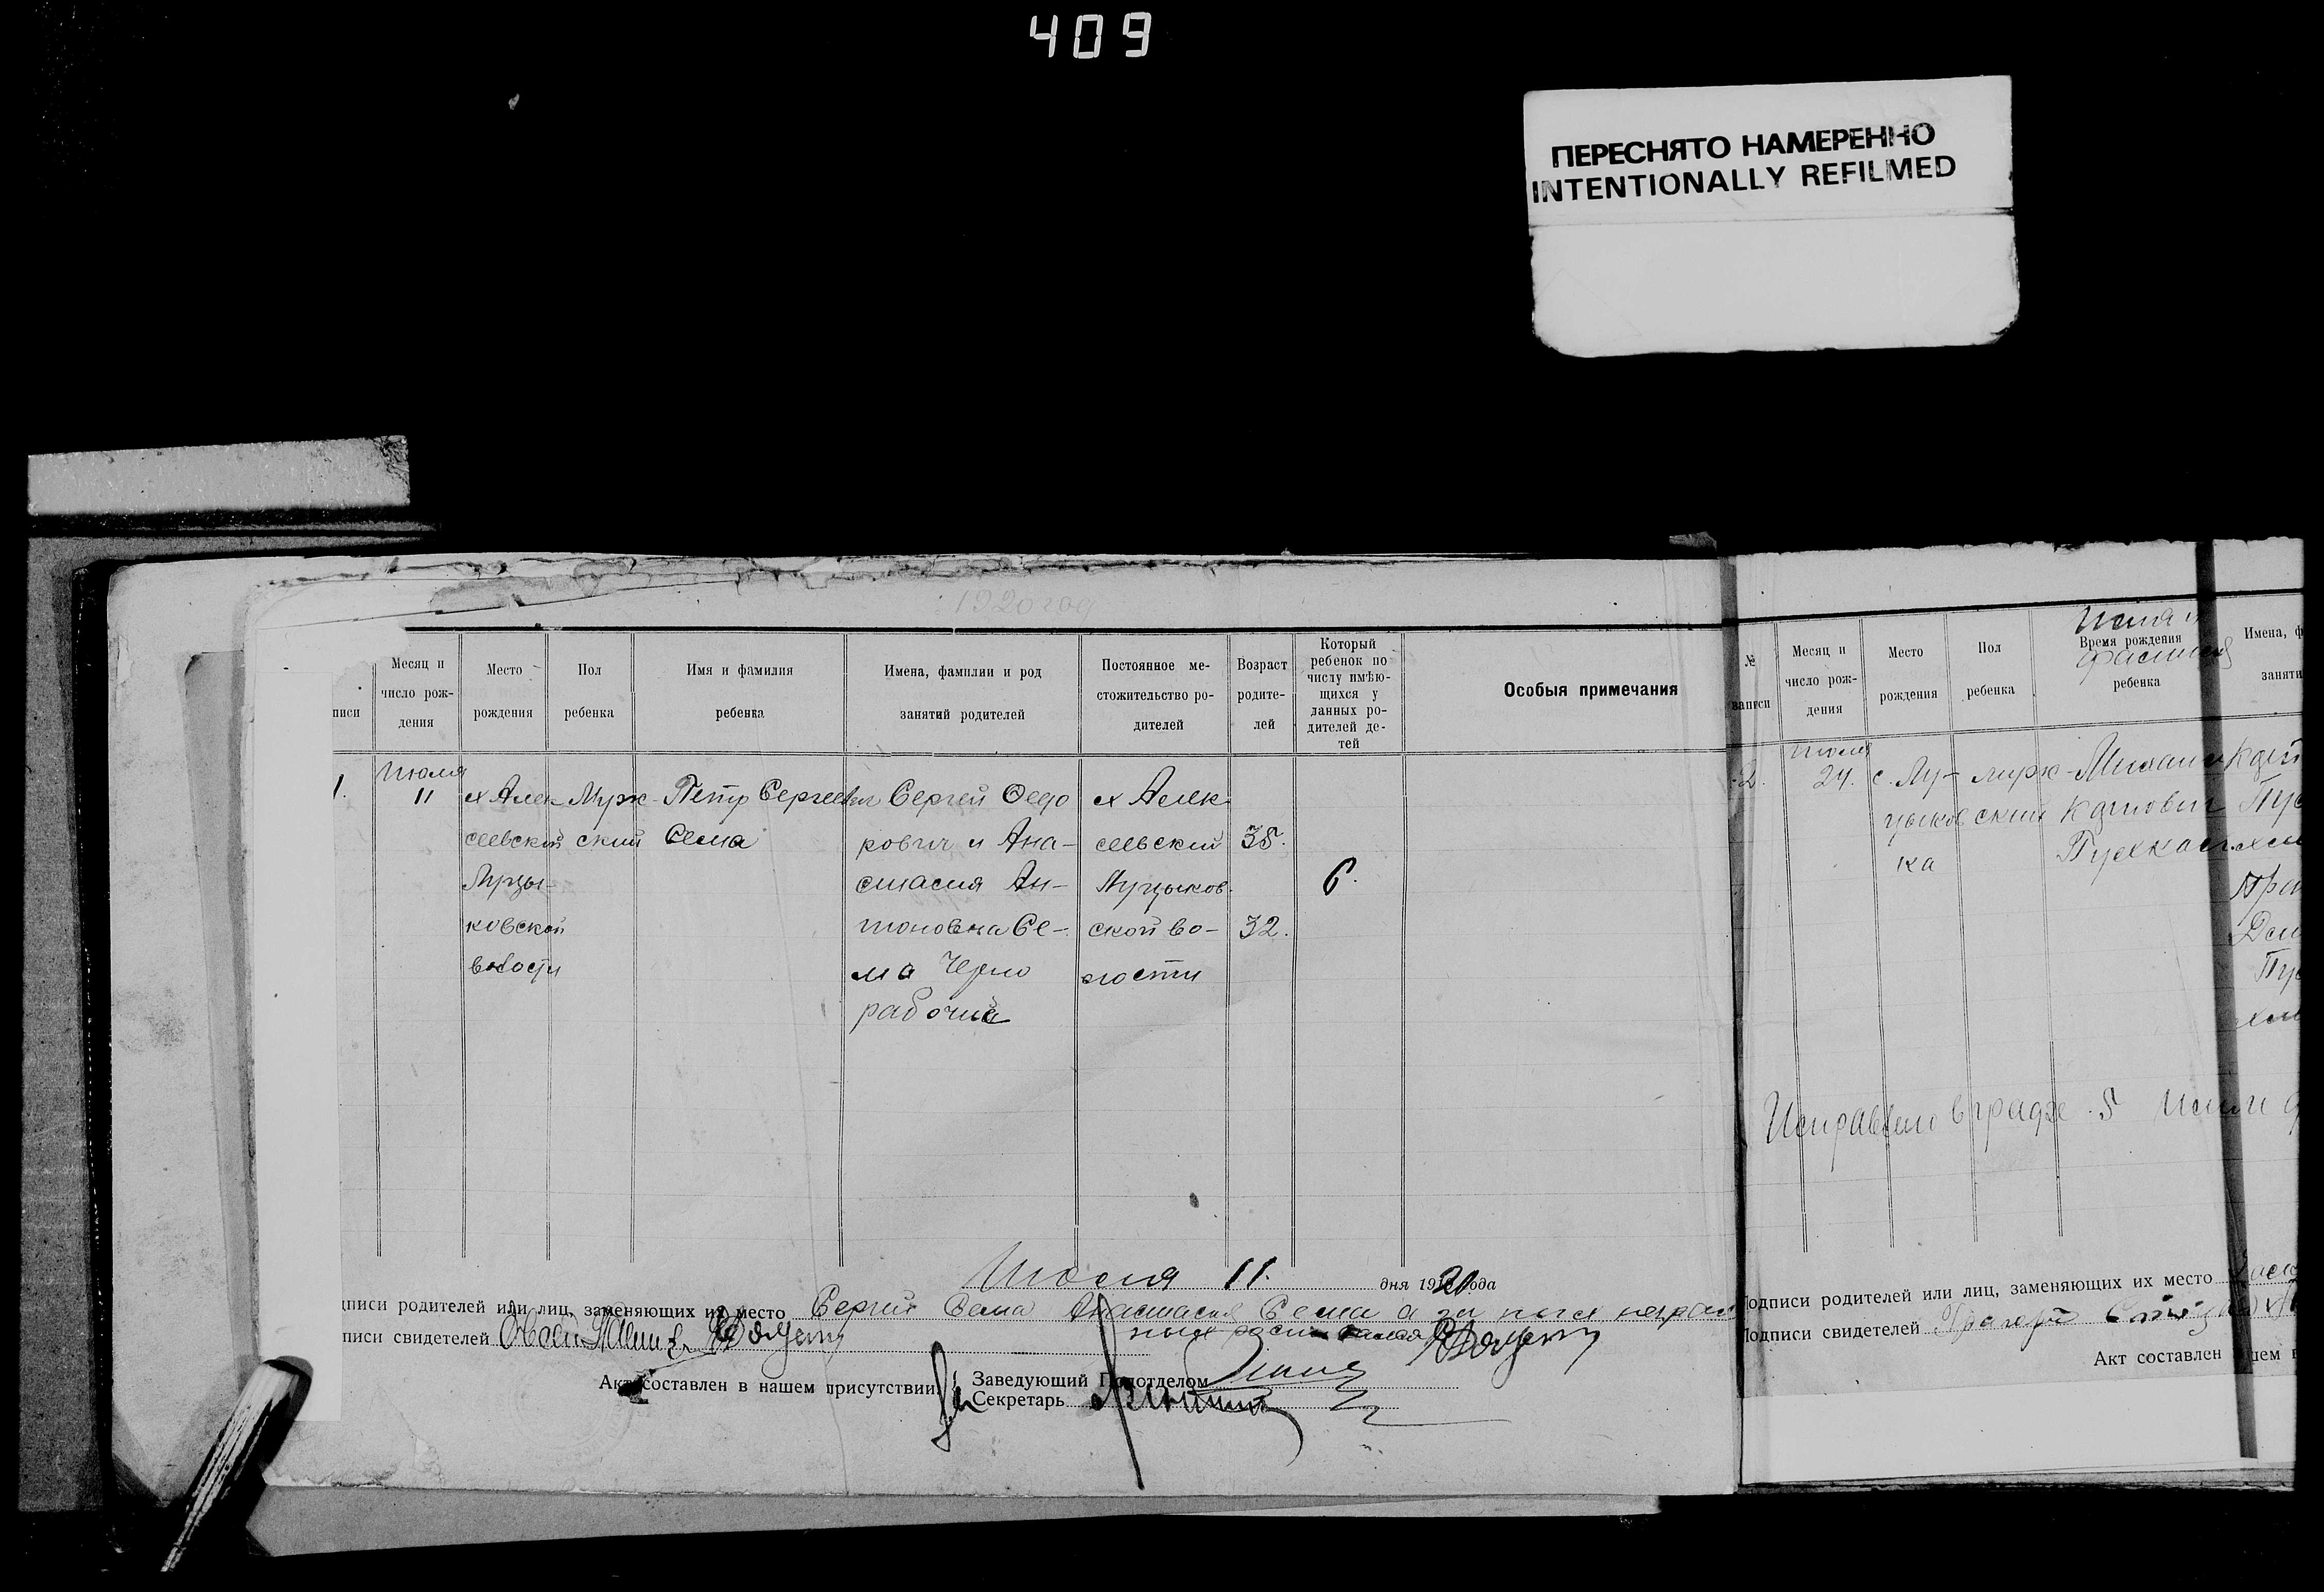 409
ПЕРЕСНЯТО НАМЕРЕННО
INTENTIONALLY REFILMED
1920 год
писи
Месяц и число рож-дения
Место рождения
Пол ребенка
Имя и фамилия ребенка
Имена, фамилии и род занятий родителей
Постоянное ме-стожительство ро-дителей
Возраст родите-лей
Который ребенок по числу имѣю-щихся у данных ро-дителей де-тей
Особыя примечания
1.
Июля
11
х Алек
сеевской
Луцы-
ковской
волости
Муж-
ский
Петр Сергеевич
Сема
Сергей Федо
рович и Ана-
стасия Ан-
тоновна Се-
ма Черно
рабочие
х Алек
сеевский
Луцыков
ской во-
лости
35.
32.
6.
Июля 11. дня 1920 года
дписи родителей или лиц, заменяющих их место Сергей Сема Анастасия Сема а за них неграм
писи свидетелей
ных
Акт составлен в нашем присутствии:
Заведующий Подотделом
Секретарь
№ записи
Месяц и число рож-дения
Место рождения
Пол ребенка
Имя и
Время рождения
ребенка
Имена, ф
заняти
2.
Июля
24.
с. Лу-
цыков
ка
муж-
ский
Михаил
Пус
Исправлено в графе 5 Имя и ф
Подписи родителей или лиц, заменяющих их место
Подписи свидетелей
Акт составлен
шем